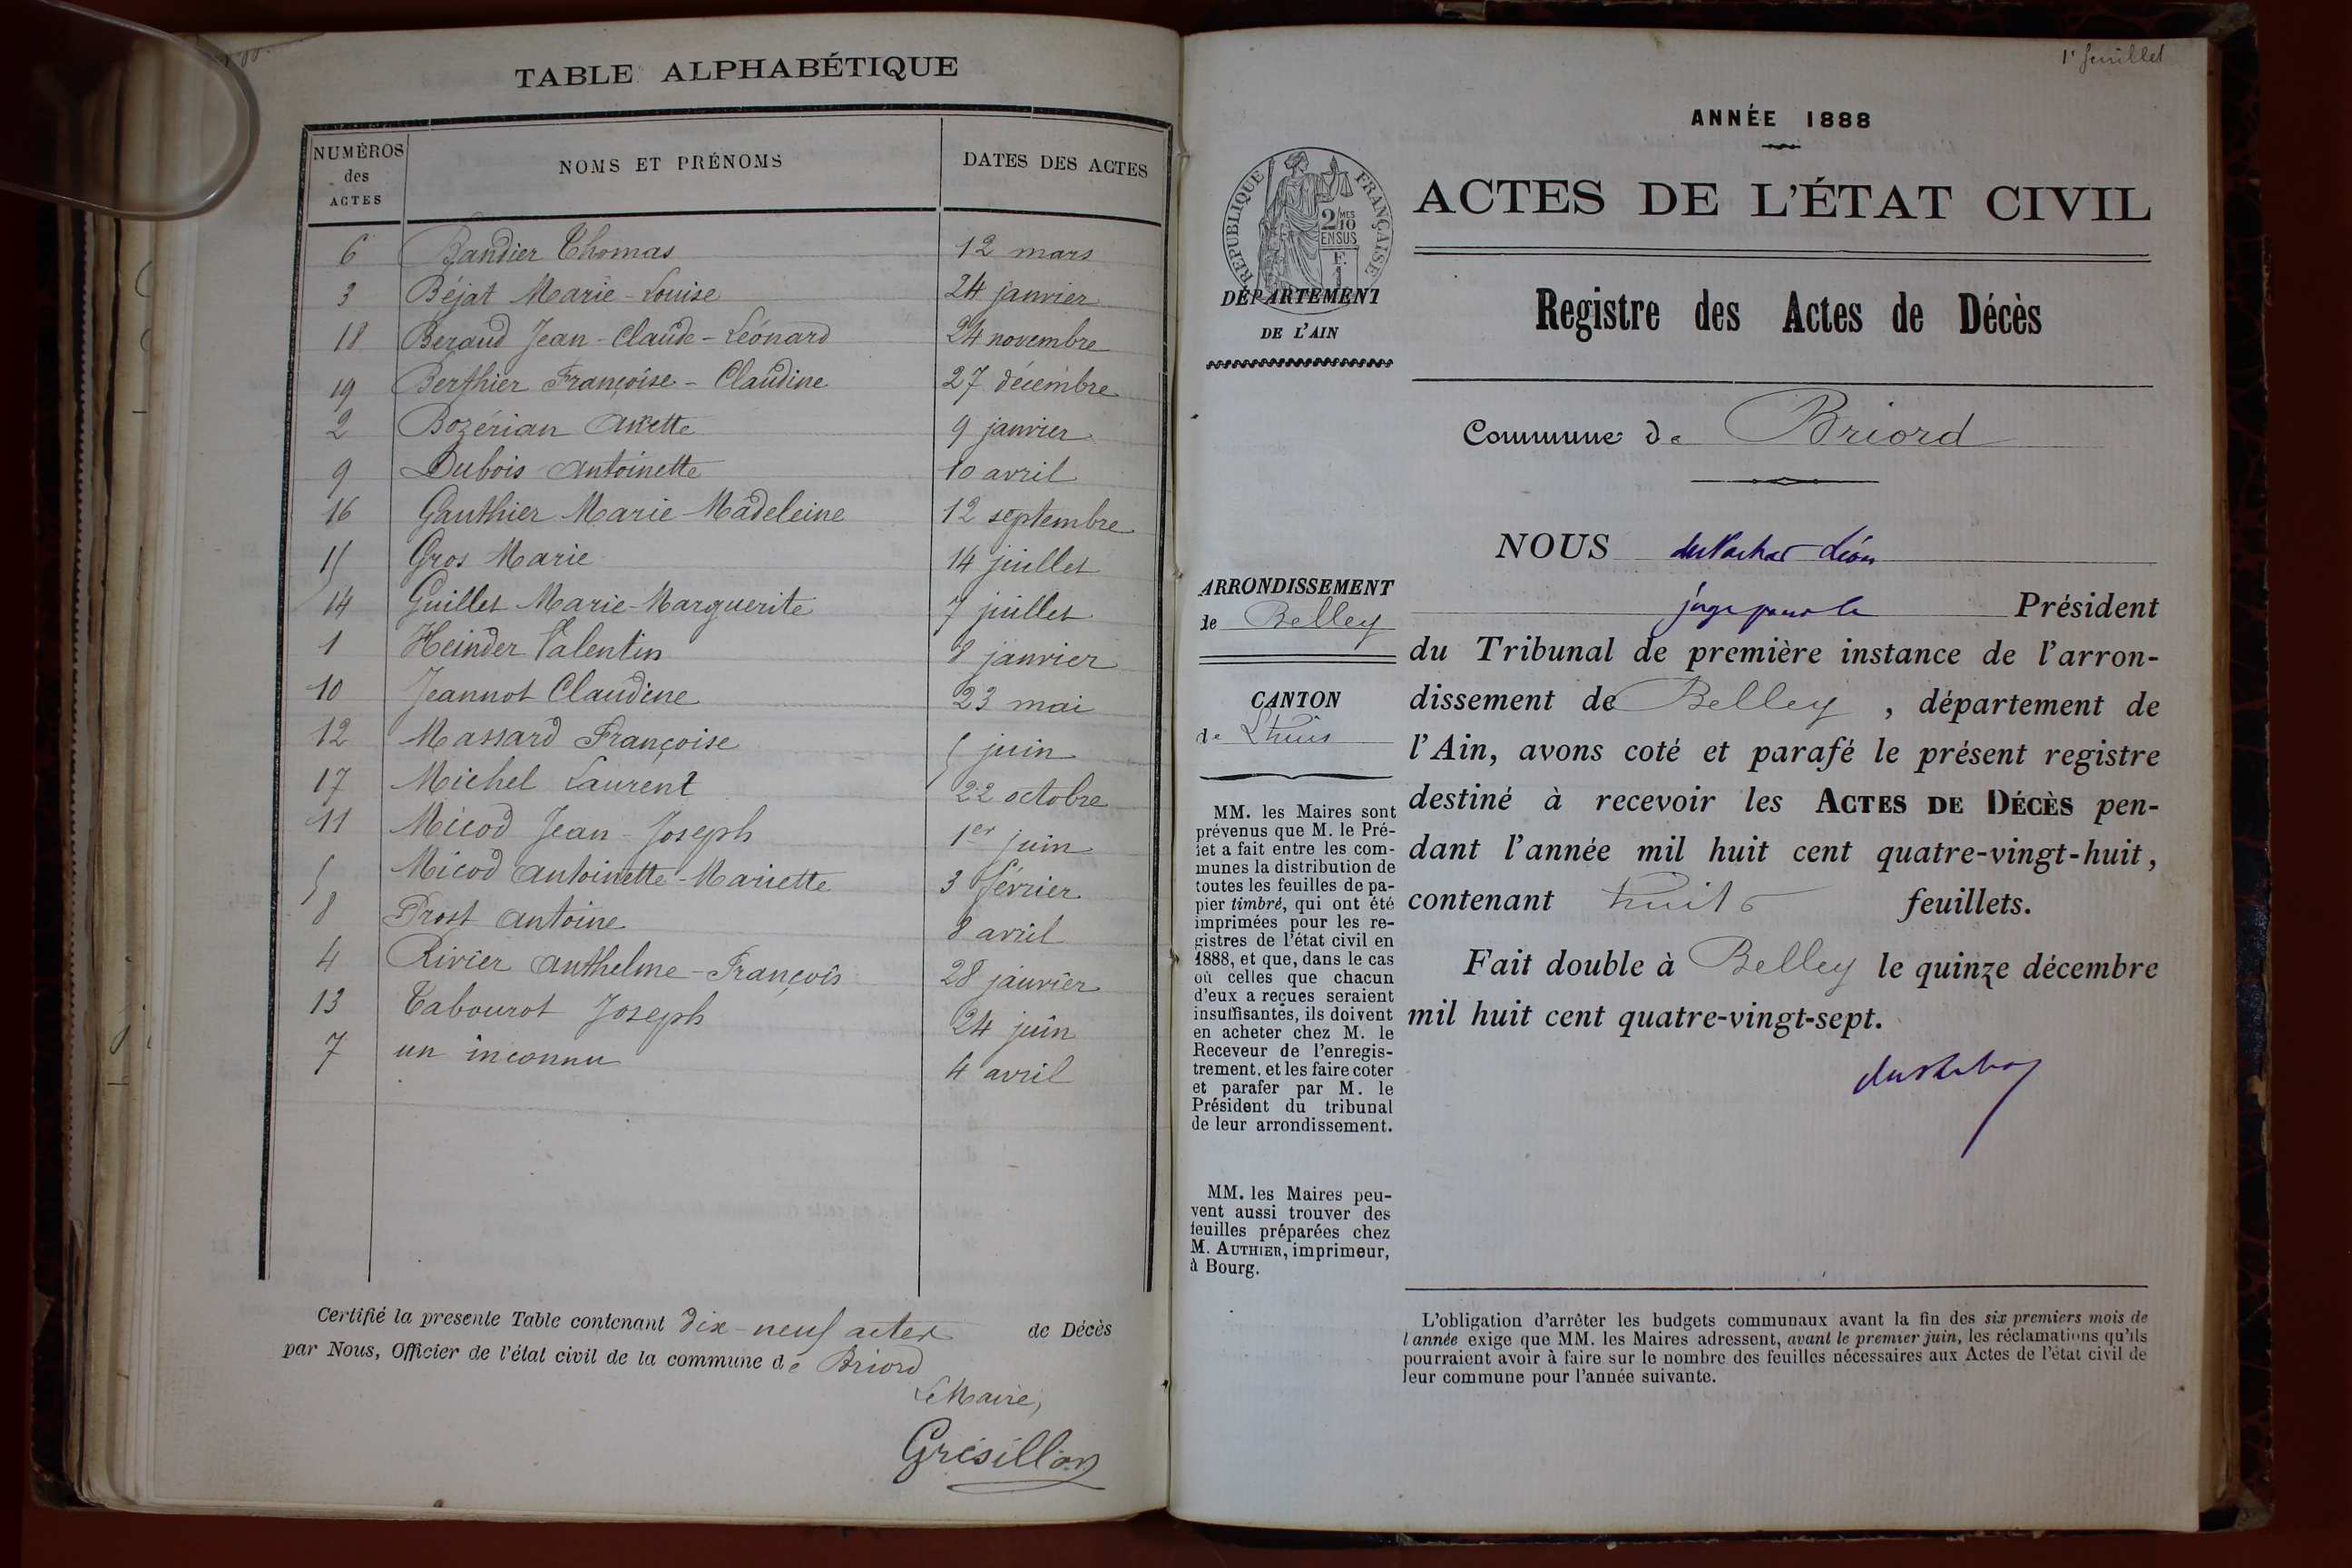 TABLE ALPHABÉTIQUE
NUMÉROS des ACTES NOMS ET PRÉNOMS DATES DES ACTES
6 Bandier Thomas 12 mars
3 Béjat Marie-Louise 24 janvier
18 Beraud Jean-Claude-Léonard 24 novembre
19 Berthier Françoise-Claudine 27 décembre
2 Bozérian Anette 9 janvier
9 Dubois Antoinette 10 avril
16 Gauthier Marie-Madeleine 12 septembre
15 Gros Marie 14 juillet
14 Guillet Marie-Marguerite 7 juillet
1 Heinder Valentin 8 janvier
10 Jeannot Claudine 23 mai
12 Massard Françoise 5 juin
17 Michel Laurent 22 octobre
11 Micod Jean-Joseph 1er juin
5 Micod Antoinette-Mariette 3 février
8 Prost Antoine 8 avril
4 Rivier Anthelme-François 28 janvier
13 Tabourot Joseph 24 juin
7 un inconnu 4 avril
Certifié la presente Table contenant dix-neuf actes de Décès
par Nous, Officier de l'état civil de la commune de Briord
Le Maire,
Grésillon
1r feuillet
ANNÉE 1888
RÉPUBLIQUE FRANÇAISE
2 MES
10
EN SUS
F.
1
DÉPARTEMENT
DE L'AIN
ACTES DE L'ÉTAT CIVIL
Registre des Actes de Décès
Commune de Briord
ARRONDISSEMENT
de Belley
CANTON
de Lhuis
MM. les Maires sont
prévenus que M. le Pré-
fet a fait entre les com-
munes la distribution de
toutes les feuilles de pa-
pier timbré, qui ont été
imprimées pour les re-
gistres de l'état civil en
1888, et que, dans le cas
où celles que chacun
d'eux a reçues seraient
insuffisantes, ils doivent
en acheter chez M. le
Receveur de l'enregis-
trement, et les faire coter
et parafer par M. le
Président du tribunal
de leur arrondissement.
MM. les Maires peu-
vent aussi trouver des
feuilles préparées chez
M. AUTHIER, imprimeur,
à Bourg.
NOUS Léon
juge pour le Président
du Tribunal de première instance de l'arron-
dissement de Belley, département de
l'Ain, avons coté et parafé le présent registre
destiné à recevoir les ACTES DE DÉCÈS pen-
dant l'année mil huit cent quatre-vingt-huit,
contenant huit feuillets.
Fait double à Belley le quinze décembre
mil huit cent quatre-vingt-sept.
L'obligation d'arrêter les budgets communaux avant la fin des six premiers mois de
l'année exige que MM. les Maires adressent, avant le premier juin, les réclamations qu'ils
pourraient avoir à faire sur le nombre des feuilles nécessaires aux Actes de l'état civil de
leur commune pour l'année suivante.